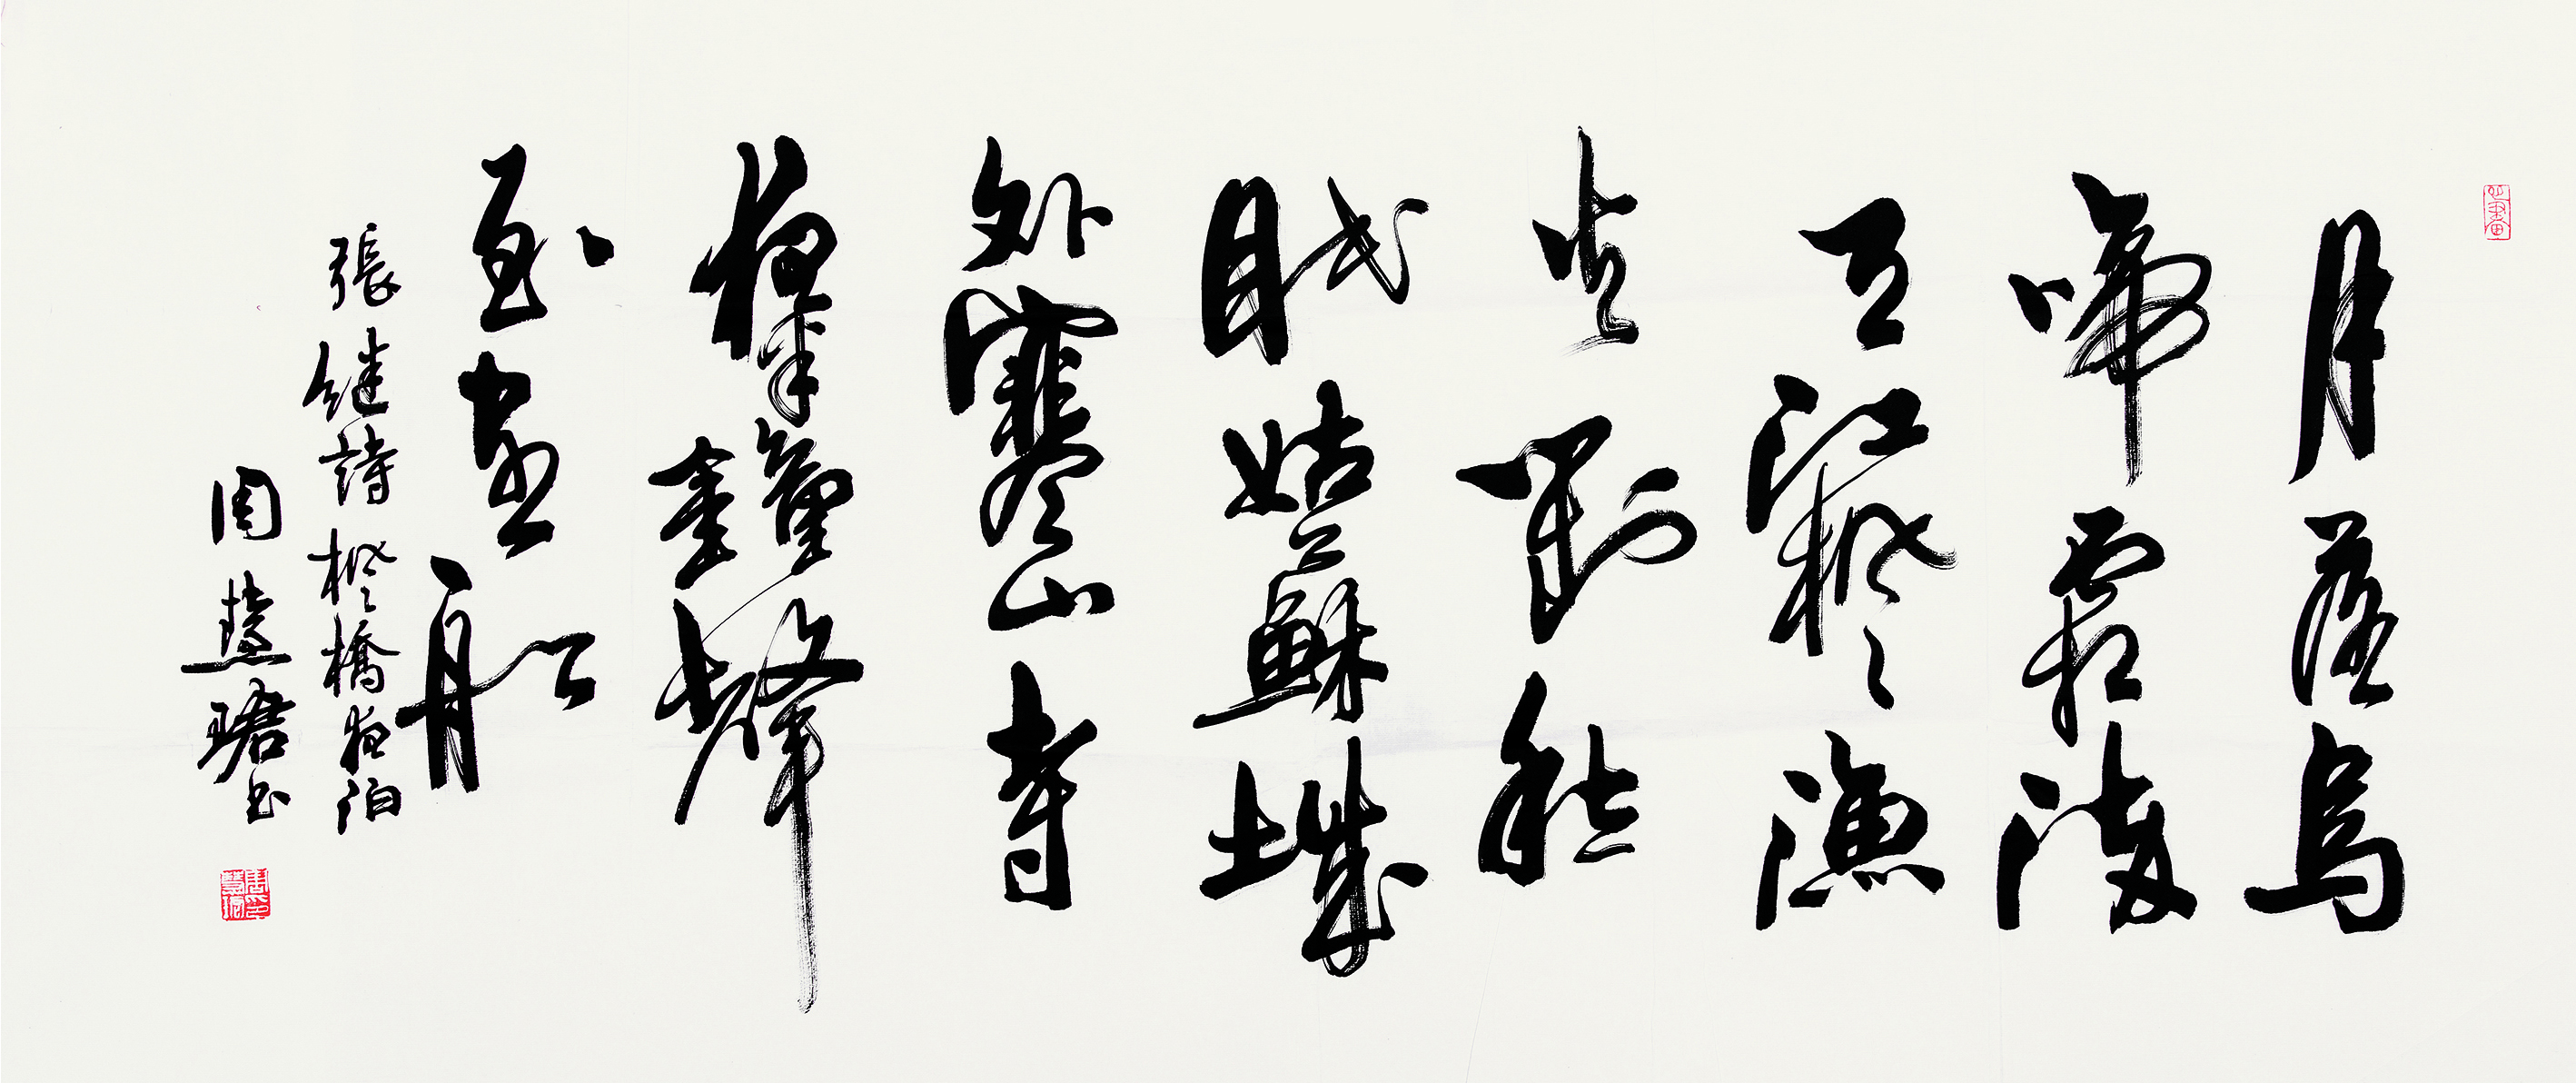 月落烏
啼霜滿
天江楓漁
火對愁
眠姑蘇城
外寒山寺
夜半鐘聲
到客船
張继詩楓橋夜泊
周慧珺书
周慧珺印